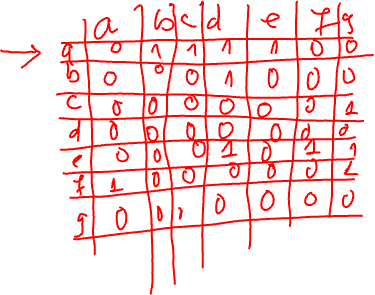 a b c d e f g
a 0 1 1 1 1 0 0
b 0 0 0 1 0 0 0
c 0 0 0 0 0 0 1
d 0 0 0 0 0 0 0
e 0 0 0 1 0 1 1
f 1 0 0 0 0 0 1
g 0 0 0 0 0 0